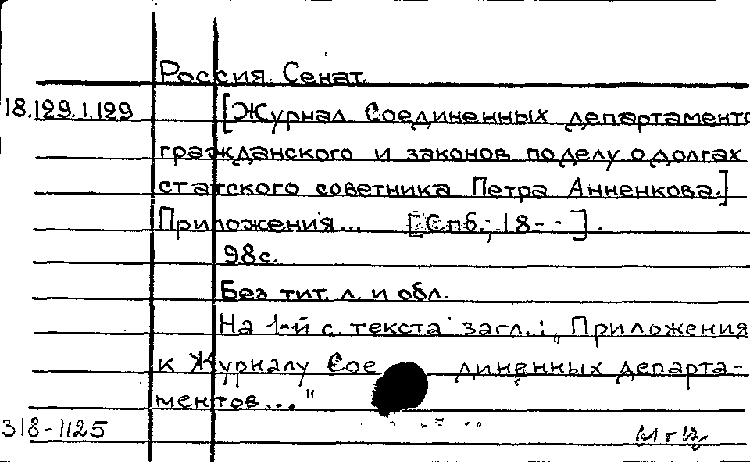 Россия. Сенат.
18.129.1.129 [Журнал Соединенных департаменто
гражданского и законов по делу о долгах
статского советника Петра Анненкова.]
Приложения... [Спб., 18--].
98с.
Без тит. л. и обл.
На 1-й с. текста загл.: „Приложения
к Журналу Сое диненных департа-
ментов..."
318-1125